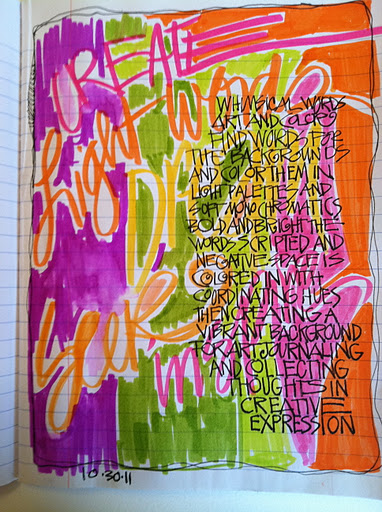 CREATE
WORD
light
DR
seek
WHIMSICAL WORDS
ART AND COLOR
FIND WORDS FOR
THE BACKGROUNDS
AND COLOR THEM IN
LIGHT PALETTES AND
SOFT MONOCHROMATICS
BOLD AND BRIGHT THE
WORDS SCRIPTED AND
NEGATIVE SPACE IS
COLORED IN WITH
COORDINATING HUES
THEN CREATING A
VIBRANT BACKGROUND
FOR ART JOURNALING
AND COLLECTING
THOUGHTS IN
CREATIVE
EXPRESSION
10.30.11